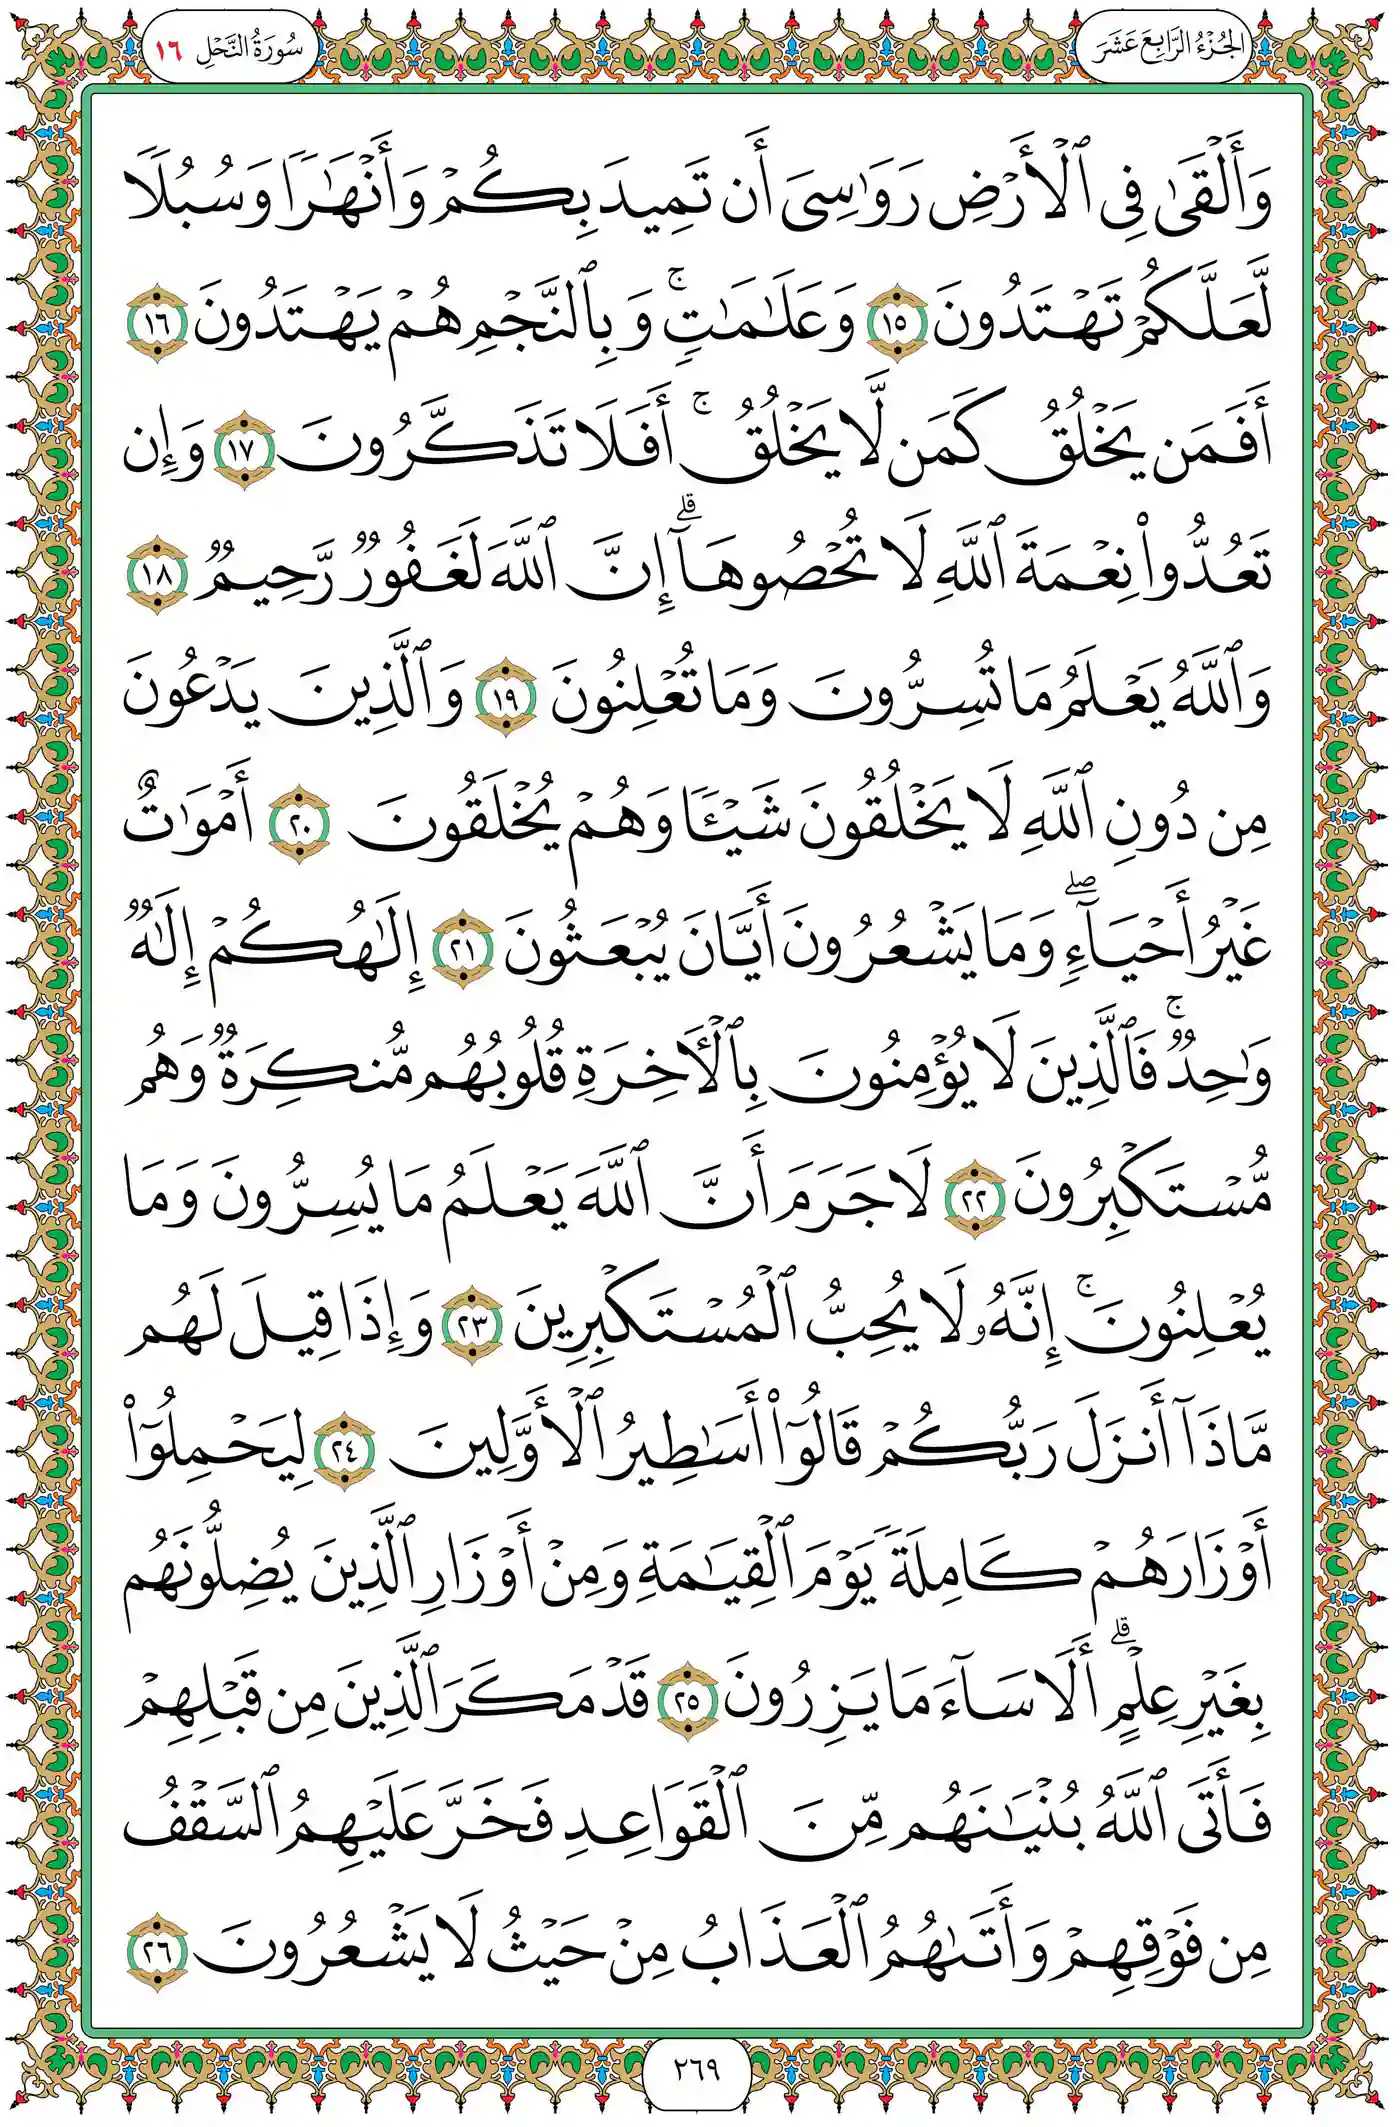 الجُزْءُ الرَّابِعَ عَشَرَ
سُورَةُ النَّحْلِ ١٦
وَأَلْقَىٰ فِى ٱلْأَرْضِ رَوَٰسِىَ أَن تَمِيدَ بِكُمْ وَأَنْهَٰرًا وَسُبُلًا
لَّعَلَّكُمْ تَهْتَدُونَ ١٥ وَعَلَٰمَٰتٍ ۚ وَبِٱلنَّجْمِ هُمْ يَهْتَدُونَ ١٦
أَفَمَن يَخْلُقُ كَمَن لَّا يَخْلُقُ ۚ أَفَلَا تَذَكَّرُونَ ١٧ وَإِن
تَعُدُّوا۟ نِعْمَةَ ٱللَّهِ لَا تُحْصُوهَآ ۗ إِنَّ ٱللَّهَ لَغَفُورٌ رَّحِيمٌ ١٨
وَٱللَّهُ يَعْلَمُ مَا تُسِرُّونَ وَمَا تُعْلِنُونَ ١٩ وَٱلَّذِينَ يَدْعُونَ
مِن دُونِ ٱللَّهِ لَا يَخْلُقُونَ شَيْـًٔا وَهُمْ يُخْلَقُونَ ٢٠ أَمْوَٰتٌ
غَيْرُ أَحْيَآءٍ ۖ وَمَا يَشْعُرُونَ أَيَّانَ يُبْعَثُونَ ٢١ إِلَٰهُكُمْ إِلَٰهٌ
وَٰحِدٌ ۚ فَٱلَّذِينَ لَا يُؤْمِنُونَ بِٱلْـَٔاخِرَةِ قُلُوبُهُم مُّنكِرَةٌ وَهُم
مُّسْتَكْبِرُونَ ٢٢ لَا جَرَمَ أَنَّ ٱللَّهَ يَعْلَمُ مَا يُسِرُّونَ وَمَا
يُعْلِنُونَ ۚ إِنَّهُۥ لَا يُحِبُّ ٱلْمُسْتَكْبِرِينَ ٢٣ وَإِذَا قِيلَ لَهُم
مَّاذَآ أَنزَلَ رَبُّكُمْ قَالُوٓا۟ أَسَٰطِيرُ ٱلْأَوَّلِينَ ٢٤ لِيَحْمِلُوٓا۟
أَوْزَارَهُمْ كَامِلَةً يَوْمَ ٱلْقِيَٰمَةِ وَمِنْ أَوْزَارِ ٱلَّذِينَ يُضِلُّونَهُم
بِغَيْرِ عِلْمٍ ۗ أَلَا سَآءَ مَا يَزِرُونَ ٢٥ قَدْ مَكَرَ ٱلَّذِينَ مِن قَبْلِهِمْ
فَأَتَى ٱللَّهُ بُنْيَٰنَهُم مِّنَ ٱلْقَوَاعِدِ فَخَرَّ عَلَيْهِمُ ٱلسَّقْفُ
مِن فَوْقِهِمْ وَأَتَىٰهُمُ ٱلْعَذَابُ مِنْ حَيْثُ لَا يَشْعُرُونَ ٢٦
٢٦٩